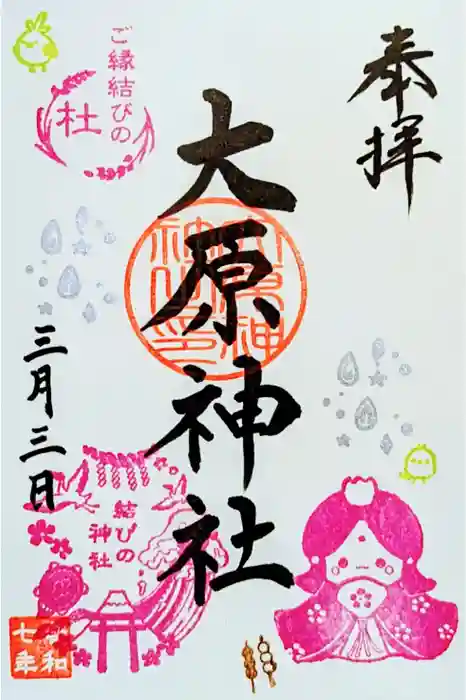 奉拝
ご縁結びの
杜
大原神社
三月三日
結びの
神社
令和
七年